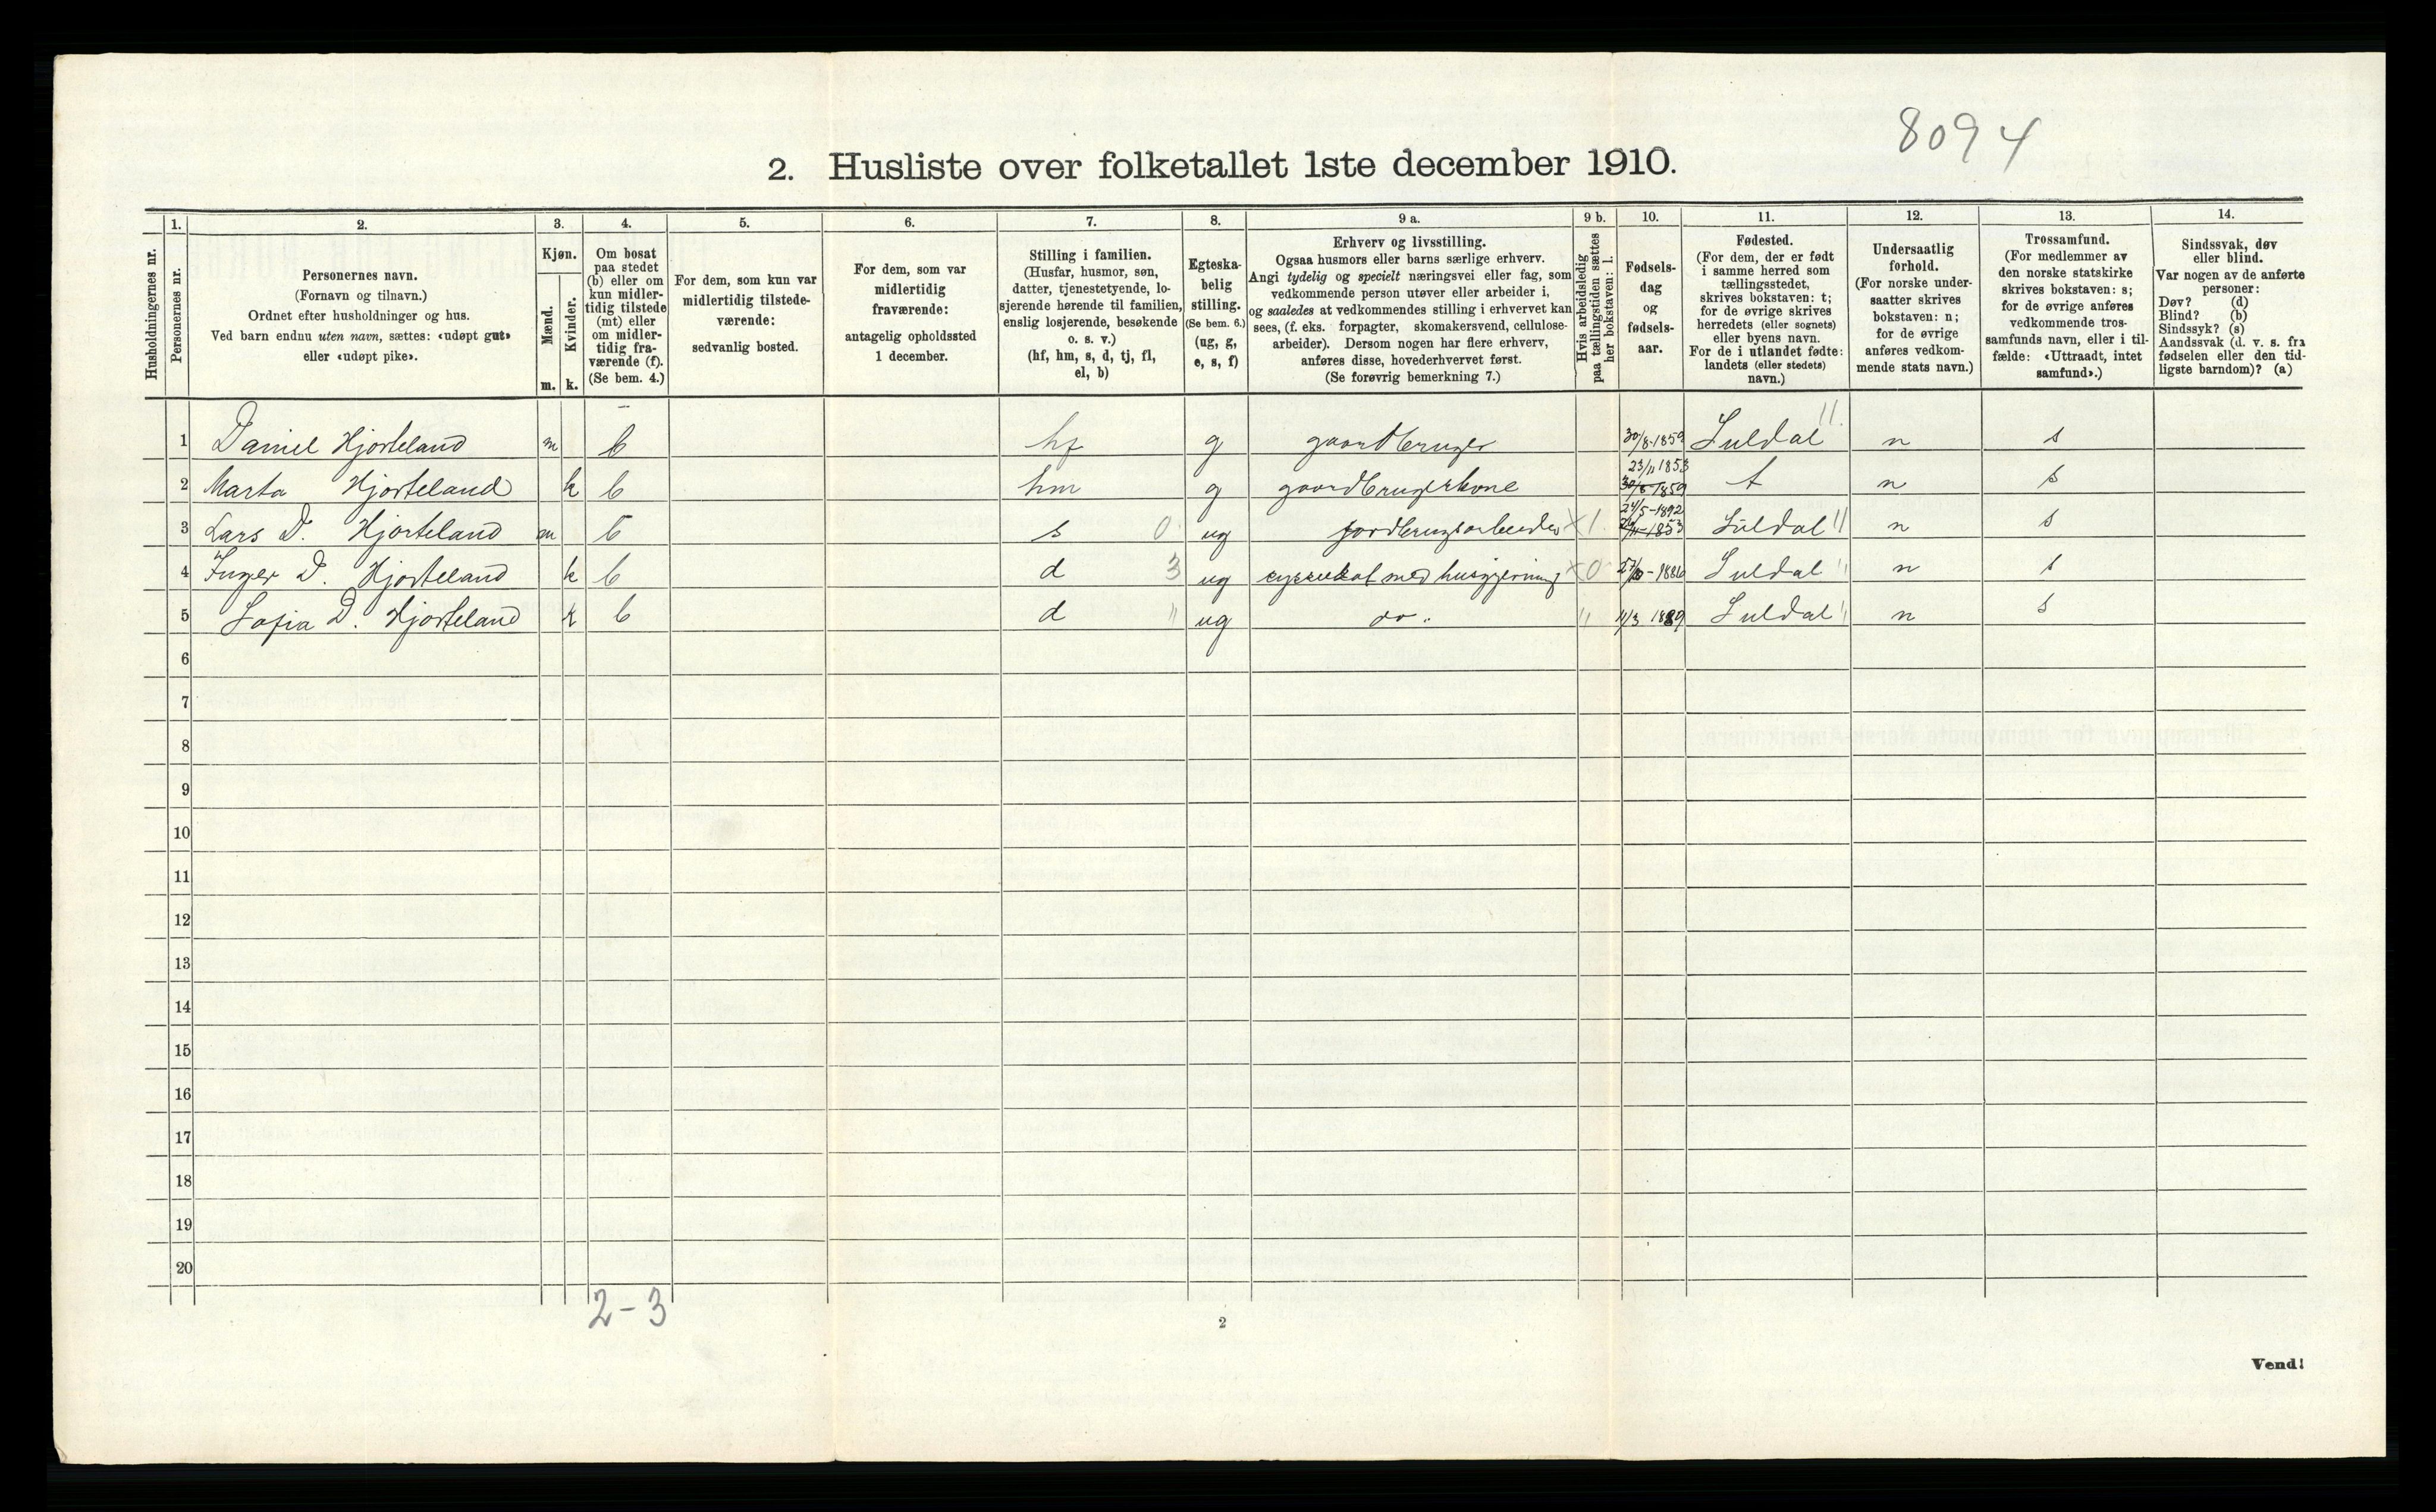 8094
2. Husliste over folketallet 1ste december 1910.
1. 2. 3. 4. 5. 6. 7. 8. 9 a. 9 b. 10. 11. 12. 13. 14.
Husholdningernes nr.
Personernes nr.
Personernes navn.
(Fornavn og tilnavn.)
Ordnet efter husholdninger og hus.
Ved barn endnu uten navn, sættes: «udøpt gut»
eller «udøpt pike».
Kjøn.
Mænd.
Kvinder.
m. k.
Om bosat
paa stedet
(b) eller om
kun midler-
tidig tilstede
(mt) eller
om midler-
tidig fra-
værende (f).
(Se bem. 4.)
For dem, som kun var
midlertidig tilstede-
værende:
sedvanlig bosted.
For dem, som var
midlertidig
fraværende:
antagelig opholdssted
1 december.
Stilling i familien.
(Husfar, husmor, søn,
datter, tjenestetyende, lo-
sjerende hørende til familien,
enslig losjerende, besøkende
o. s. v.)
(hf, hm, s, d, tj, fl,
el, b)
Egteska-
belig
stilling.
(Se bem. 6.)
(ug, g,
e, s, f)
Erhverv og livsstilling.
Ogsaa husmors eller barns særlige erhverv.
Angi tydelig og specielt næringsvei eller fag, som
vedkommende person utøver eller arbeider i,
og saaledes at vedkommendes stilling i erhvervet kan
sees, (f. eks. forpagter, skomakersvend, cellulose-
arbeider). Dersom nogen har flere erhverv,
anføres disse, hovederhvervet først.
(Se forøvrig bemerkning 7.)
Hvis arbeidsledig
paa tællingstiden sættes
her bokstaven: l.
Fødsels-
dag
og
fødsels-
aar.
Fødested.
(For dem, der er født
i samme herred som
tællingsstedet,
skrives bokstaven: t;
for de øvrige skrives
herredets (eller sognets)
eller byens navn.
For de i utlandet fødte:
landets (eller stedets)
navn.)
Undersaatlig
forhold.
(For norske under-
saatter skrives
bokstaven: n;
for de øvrige
anføres vedkom-
mende stats navn.)
Trossamfund.
(For medlemmer av
den norske statskirke
skrives bokstaven: s;
for de øvrige anføres
vedkommende tros-
samfunds navn, eller i til-
fælde: «Uttraadt, intet
samfund».)
Sindssvak, døv
eller blind.
Var nogen av de anførte
personer:
Døv? (d)
Blind? (b)
Sindssyk? (s)
Aandssvak (d. v. s. fra
fødselen eller den tid-
ligste barndom)? (a)
1 Daniel Hjorteland m b hf g gaardbruger 30/8-1859 Suldal 11. n s
2 Marta Hjorteland k b hm g gaardbrugerkone 23/11 1853 30/8-1859 t n s
3 Lars D. Hjorteland m b s 0 ug jordbrugsarbeider X 1. 24/5-1892 Suldal 11 n s
4 Inger D. Hjorteland k b d 3 ug sysselsat med husgjerning X 0 27/10-1886 Suldal " n s
5 Sofia D. Hjorteland k b d " ug do. " 11/3 1889 Suldal " n s
6
7
8
9
10
11
12
13
14
15
16
17
18
19
20
2-3
2
Vend!